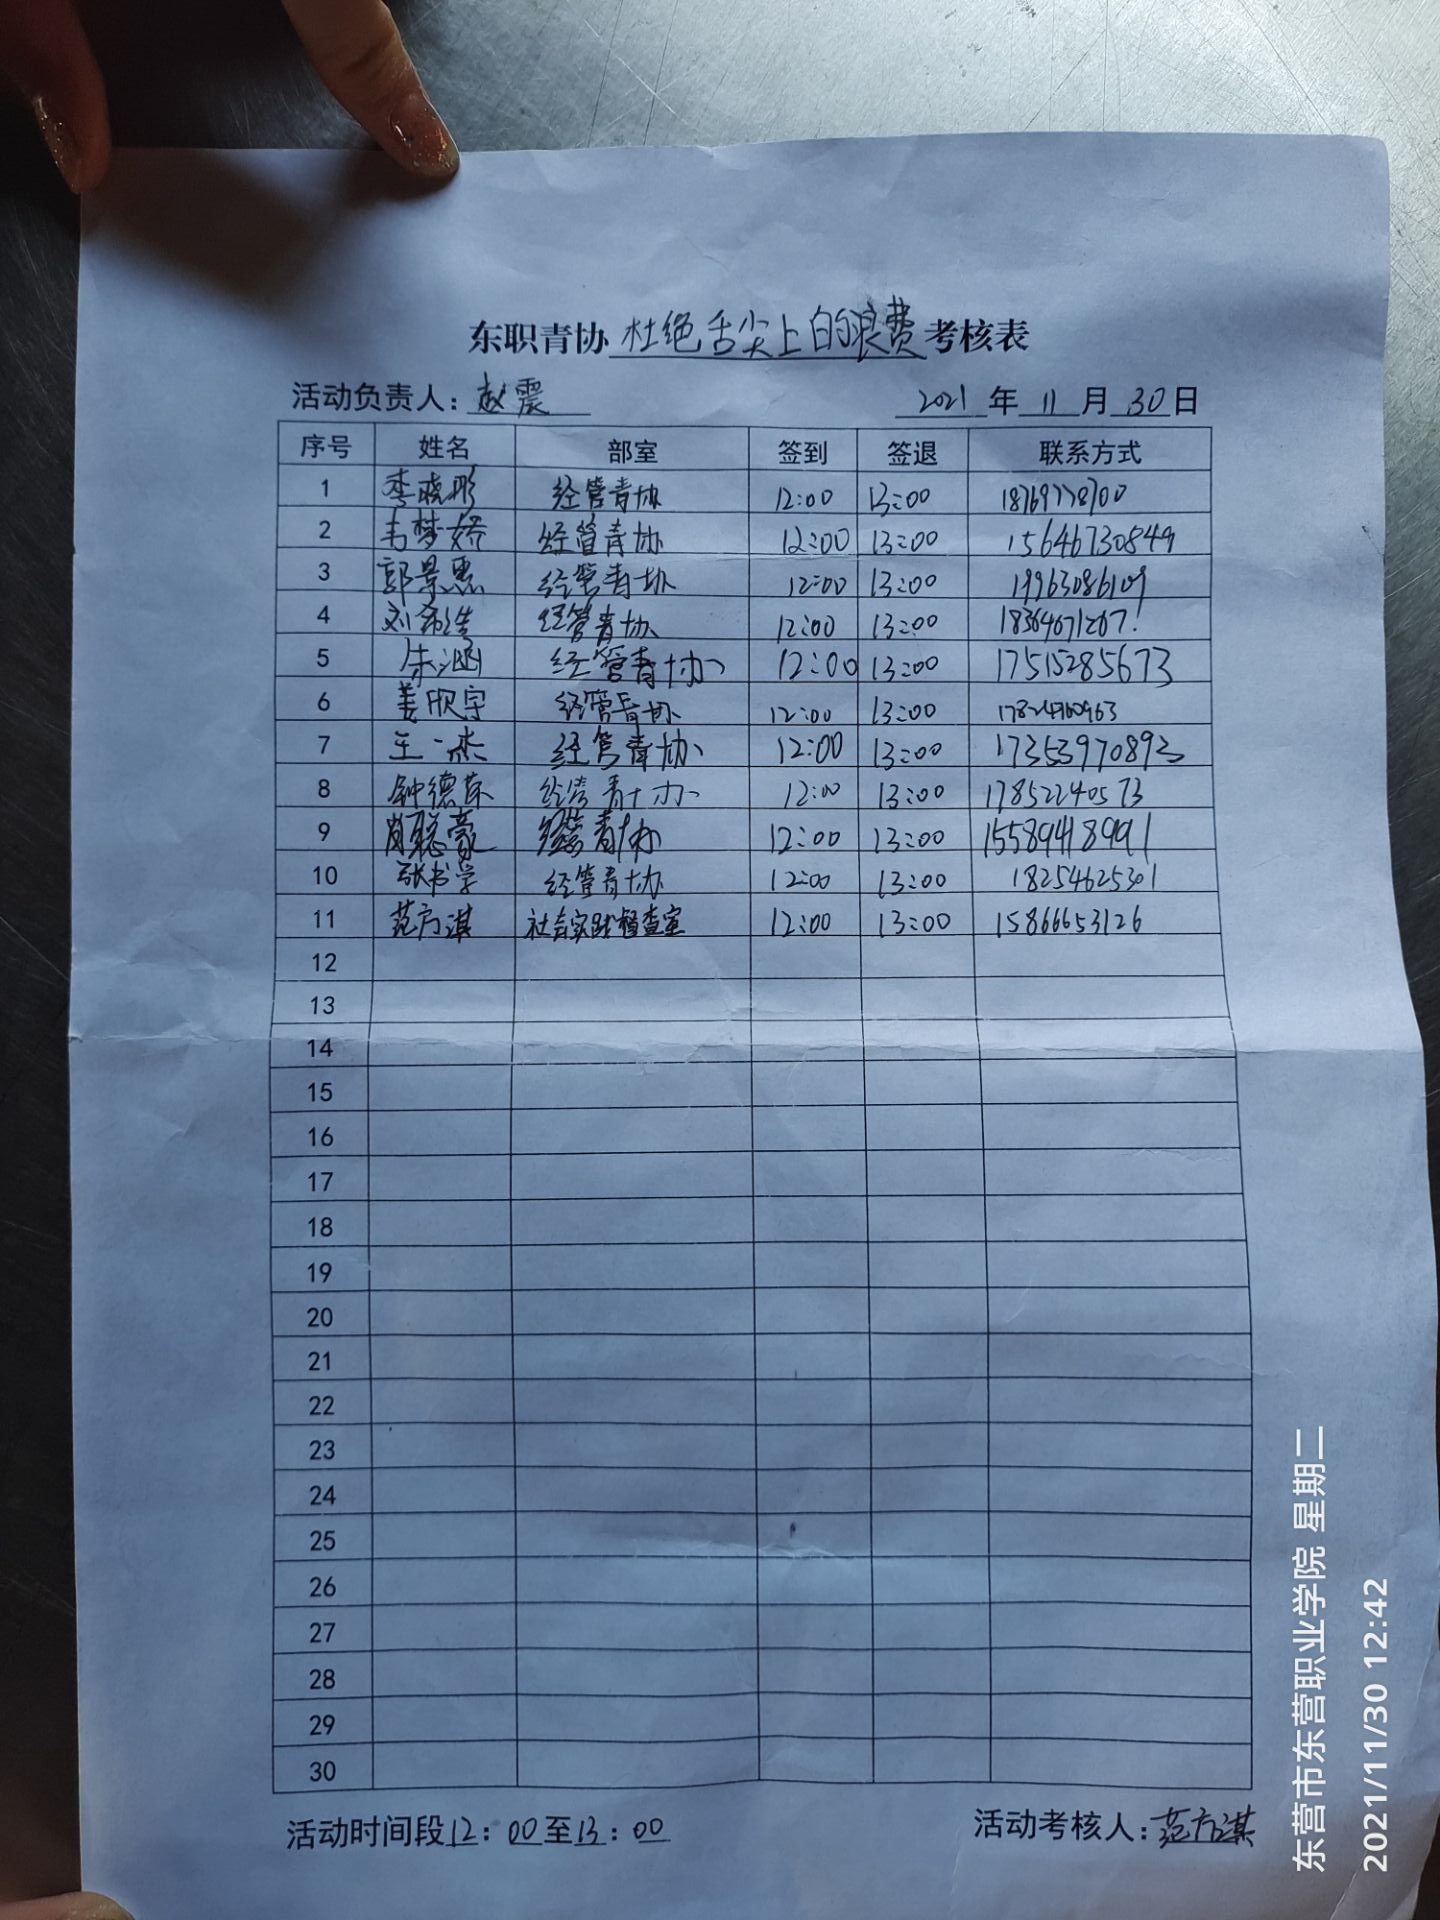 东职青协 杜绝舌尖上的浪费 考核表
活动负责人：赵震 2021 年 11 月 30 日
序号 姓名 部室 签到 签退 联系方式
1 李晓彤 经管青协 12:00 13:00 18769778700
2 韦梦娇 经管青协 12:00 13:00 15646730849
3 郭景惠 经管青协 12:00 13:00 19963086109
4 刘希 经管青协 12:00 13:00 18364671267
5 朱涵 经管青协 12:00 13:00 17515285673
6 姜欣宇 经管青协 12:00 13:00
7 王一杰 经管青协 12:00 13:00 17353970893
8 钟德 经管青协 12:00 13:00 17852240573
9 肖聪豪 经管青协 12:00 13:00 15589418991
10 张书学 经管青协 12:00 13:00 18254625301
11 范方淇 社会实践督查室 12:00 13:00 15866653126
12
13
14
15
16
17
18
19
20
21
22
23
24
25
26
27
28
29
30
活动时间段12：00至13：00 活动考核人：范方淇
东营市东营职业学院 星期二
2021/11/30 12:42